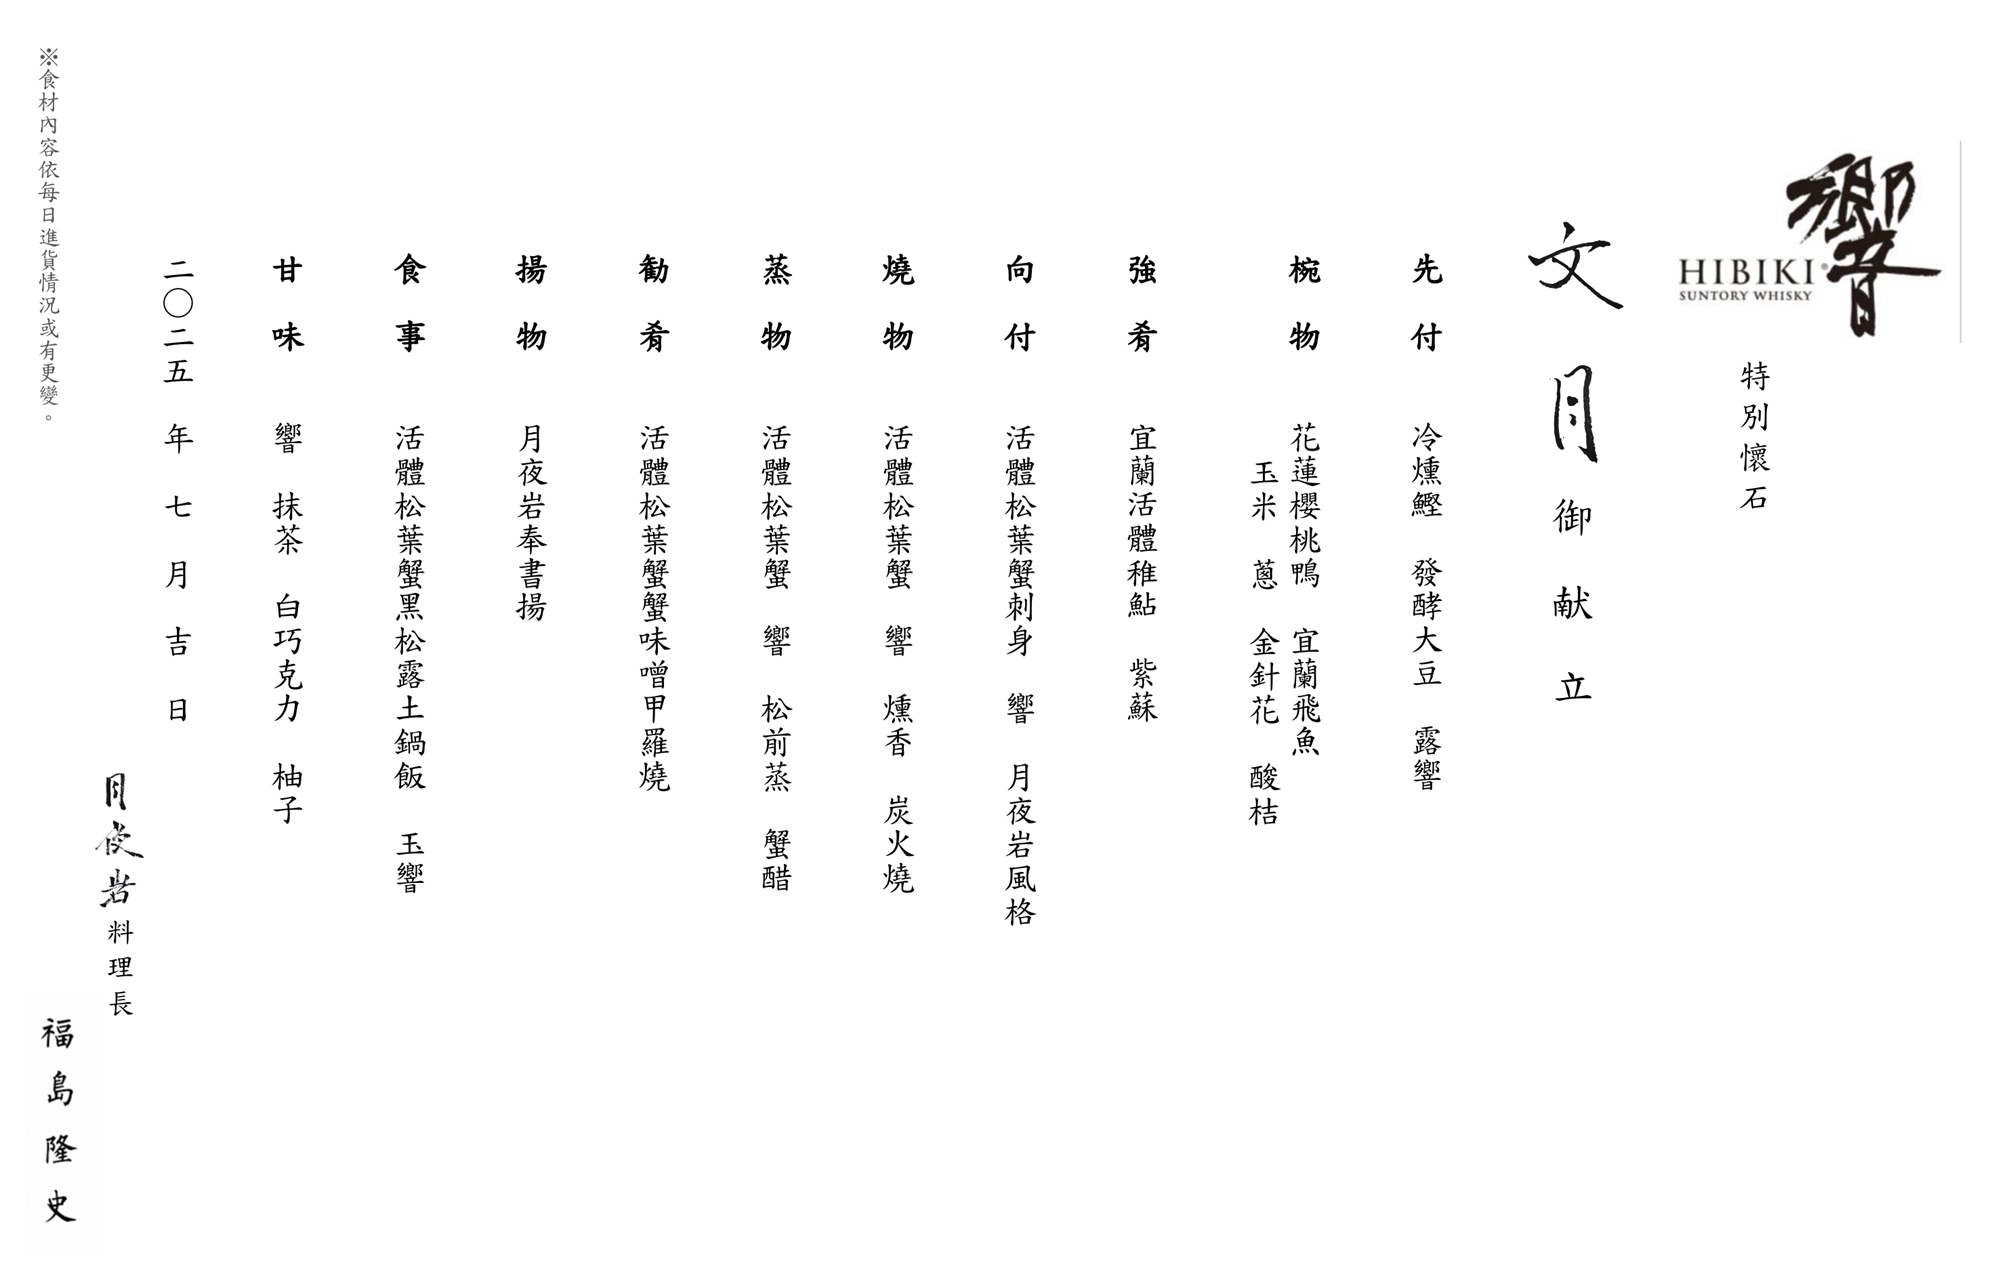 響
HIBIKI®
SUNTORY WHISKY
特別懷石
文月御献立
先付 冷燻鰹 發酵大豆 露響
椀物 花蓮櫻桃鴨 宜蘭飛魚
玉米 蔥 金針花 酸桔
強肴 宜蘭活體稚鮎 紫蘇
向付 活體松葉蟹刺身 響 月夜岩風格
燒物 活體松葉蟹 響 燻香 炭火燒
蒸物 活體松葉蟹 響 松前蒸 蟹醋
勧肴 活體松葉蟹蟹味噌甲羅燒
揚物 月夜岩奉書揚
食事 活體松葉蟹黑松露土鍋飯 玉響
甘味 響 抹茶 白巧克力 柚子
二〇二五年七月吉日
月夜岩料理長
福島隆史
※食材內容依每日進貨情況或有更變。